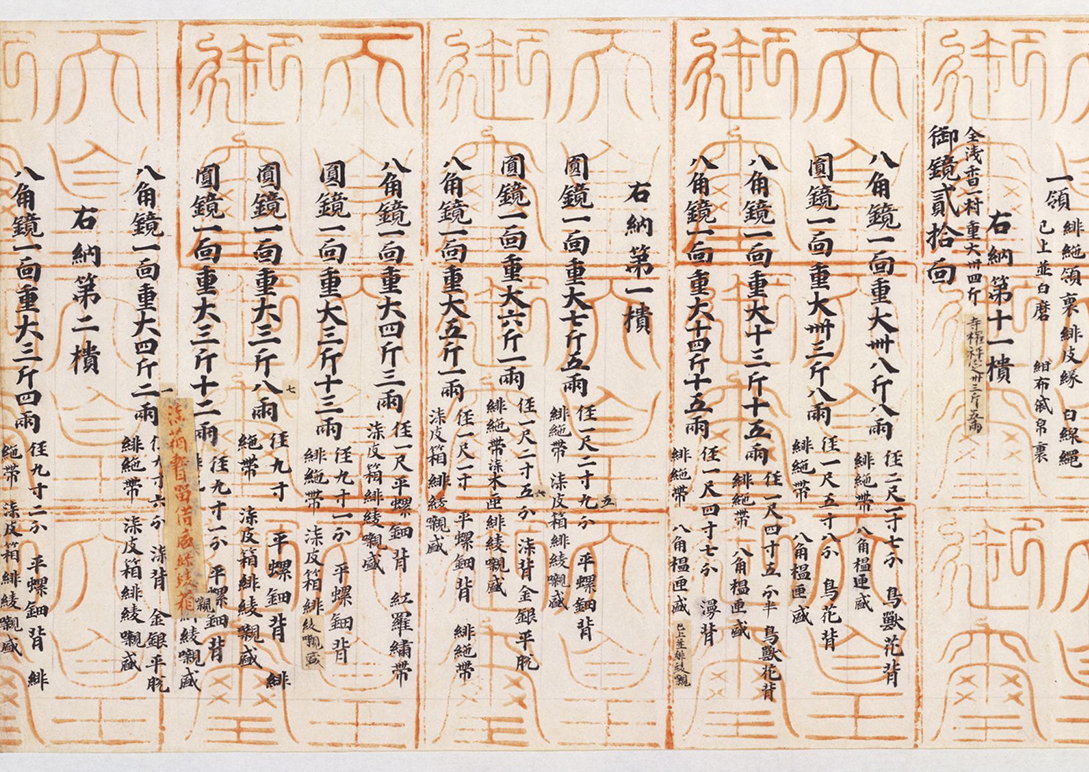 一領 緋絁領裏緋皮縁 白線縄
已上並白磨 紺布袋帛裏
右納第十一樻
全浅香一村 重大卅四斤
御鏡貳拾面
八角鏡一面重大卌八斤八兩 径二尺一寸七分 鳥獸花背
緋絁帶 八角榲匣盛
圓鏡一面重大卌三斤八兩 径一尺五寸八分 鳥花背
緋絁帶 八角榲匣盛
八角鏡一面重大十三斤十五兩 径一尺四寸五分半 鳥獸花背
緋絁帶 八角榲匣盛
八角鏡一面重大十四斤十五兩 径一尺四寸七分 漫背
緋絁帶 八角榲匣盛 已上並緋綾嚫
右納第一樻
圓鏡一面重大七斤五兩 径一尺二寸九分 平螺鈿背
緋絁帶 柒皮箱緋綾嚫盛
五
圓鏡一面重大六斤一兩 径一尺二寸五分 柒背金銀平脱
緋絁帶柒木匣緋綾嚫盛
六
八角鏡一面重大五斤一兩 径一尺二寸 平螺鈿背 緋絁帶
柒皮箱 緋綾嚫盛
八角鏡一面重大四斤三兩 径一尺平螺鈿背 紅羅繡帶
柒皮箱緋綾嚫盛
圓鏡一面重大三斤十三兩 径九寸一分 平螺鈿背
緋絁帶 柒皮箱緋綾嚫盛
圓鏡一面重大三斤八兩 径九寸 平螺鈿背 緋
絁帶 柒皮箱緋綾嚫盛
七
圓鏡一面重大三斤十二兩 径九寸一分 平螺鈿背
緋綾嚫盛
八角鏡一面重大四斤二兩 径九寸六分 柒背 金銀平脱
緋絁帶 柒皮箱緋綾嚫盛
右納第二樻
八角鏡一面重大三斤四兩 径九寸二分 平螺鈿背 緋
絁帶 柒皮箱緋綾嚫盛